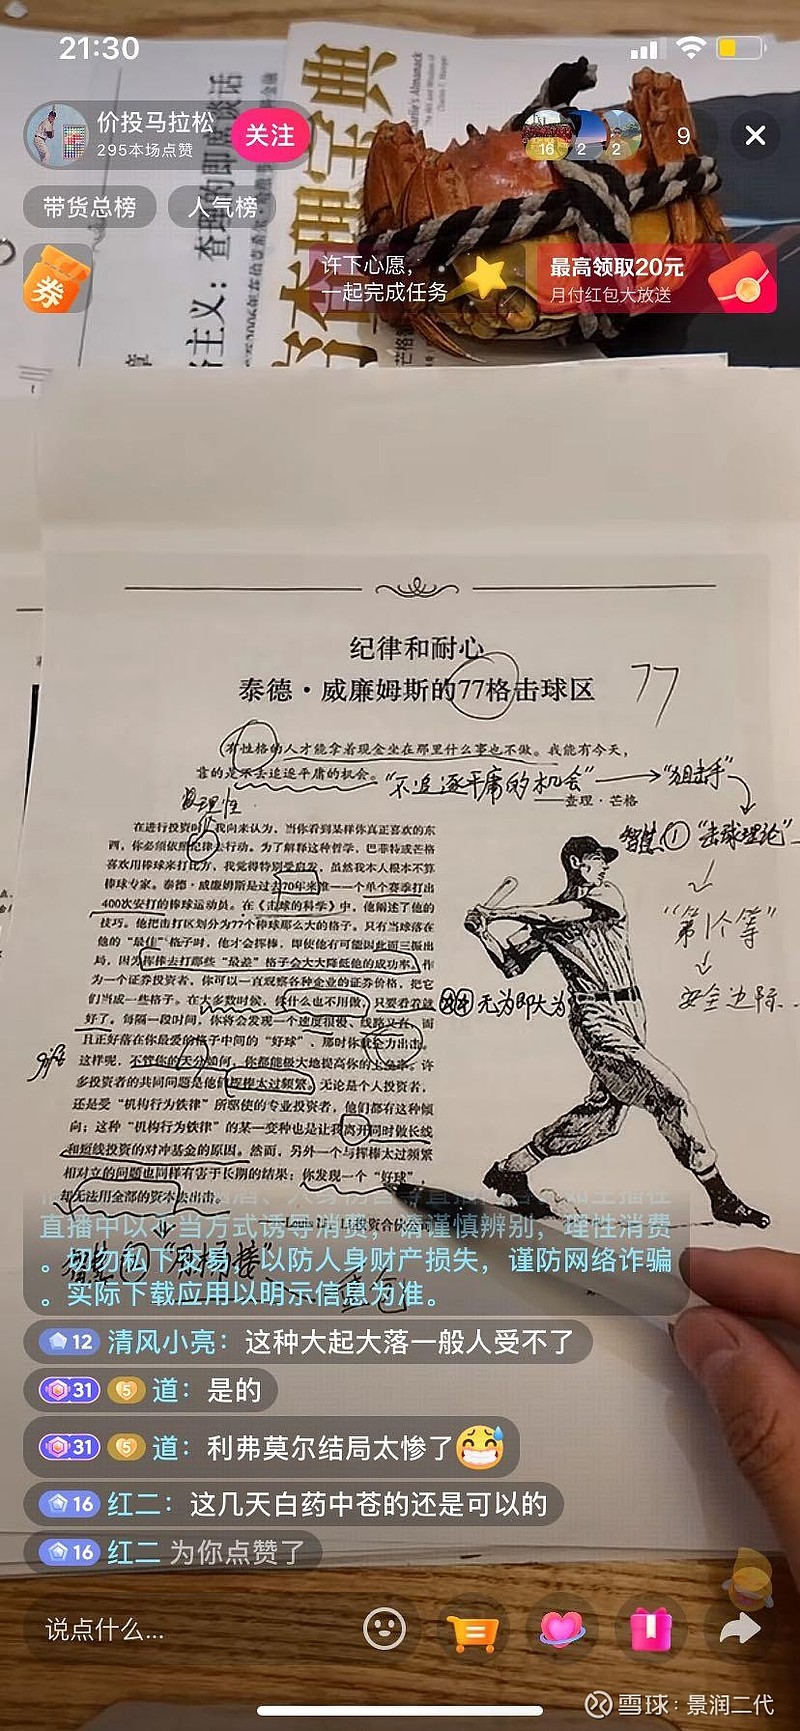 21:30
价投马拉松
295本场点赞
关注
16
2
2
9
带货总榜
人气榜
主义：查理的即席谈话
宝典
Charlie's Almanack
券
许下心愿，
一起完成任务
最高领取20元
月付红包大放送
纪律和耐心
泰德·威廉姆斯的77格击球区
77
有性格的人才能拿着现金坐在那里什么事也不做。我能有今天，
靠的是不去追逐平庸的机会。
“不追逐平庸的机会”
“狙击手”
——查理·芒格
在进行投资时，我向来认为，当你看到某样你真正喜欢的东
西，你必须依照纪律去行动。为了解释这种哲学，巴菲特或芒格
喜欢用棒球来打比方，我觉得特别受启发，虽然我本人根本不算
棒球专家。泰德·威廉姆斯是过去70年来唯一一个单个赛季打出
400次安打的棒球运动员。在《击球的科学》中，他阐述了他的
技巧。他把击打区划分为77个棒球那么大的格子。只有当球落在
他的“最佳”格子时，他才会挥棒，即使他有可能因此而三振出
局，因为挥棒去打那些“最差”格子会大大降低他的成功率。作
为一个证券投资者，你可以一直观察各种企业的证券价格，把它
们当成一些格子。在大多数时候，你什么也不用做，只要看着就
好了。每隔一段时间，你将会发现一个速度很慢、线路又直，而
且正好落在你最爱的格子中间的“好球”，那时你就全力出击。
这样呢，不管你的天分如何，你都能极大地提高你的上垒率。许
多投资者的共同问题是他们挥棒太过频繁。无论是个人投资者，
还是受“机构行为铁律”所驱使的专业投资者，他们都有这种倾
向；这种“机构行为铁律”的某一变种也是让我离开同时做长线
和短线投资的对冲基金的原因。然而，另外一个与挥棒太过频繁
相对立的问题也同样有害于长期的结果：你发现一个“好球”，
却无法用全部的资本去出击。
智慧① “击球理论”
“第1个等”
安全边际
无为即大为
直播中以不当方式诱导消费，请谨慎辨别，理性消费
。切勿私下交易，以防人身财产损失，谨防网络诈骗
。实际下载应用以明示信息为准。
12 清风小亮：这种大起大落一般人受不了
31 5 道：是的
31 5 道：利弗莫尔结局太惨了
16 红二：这几天白药中苍的还是可以的
16 红二 为你点赞了
说点什么...
雪球：景润二代